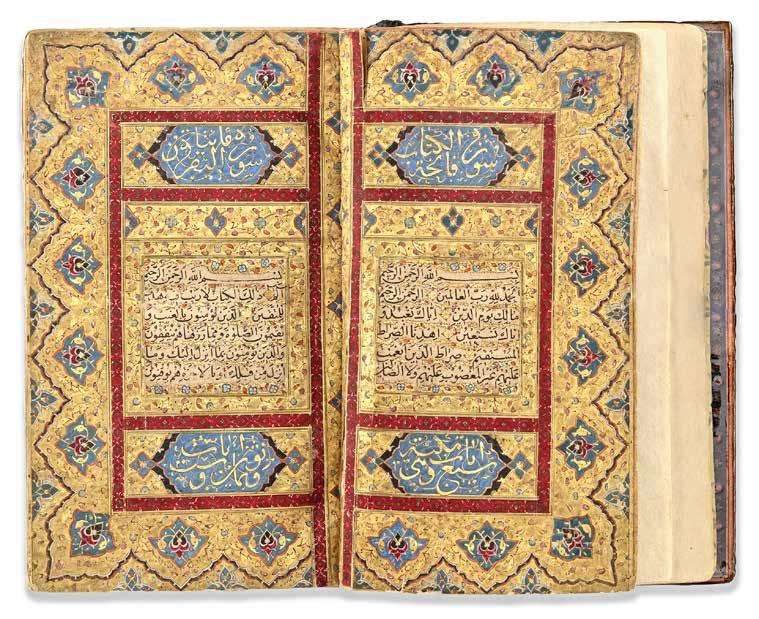 سورة فاتحة الكتاب
بسم الله الرحمن الرحيم
الحمد لله رب العالمين الرحمن الرحيم
مالك يوم الدين اياك نعبد و
اياك نستعين اهدنا الصراط
المستقيم صراط الذين انعمت
عليهم غير المغضوب عليهم ولا الضالين
وهي سبع آيات مكية
سورة البقرة مايتان و
بسم الله الرحمن الرحيم
الم ذلك الكتاب لا ريب فيه هدى
للمتقين الذين يؤمنون بالغيب و
يقيمون الصلوة ومما رزقناهم ينفقون
والذين يؤمنون بما انزل اليك وما
انزل من قبلك وبالاخرة هم يوقنون